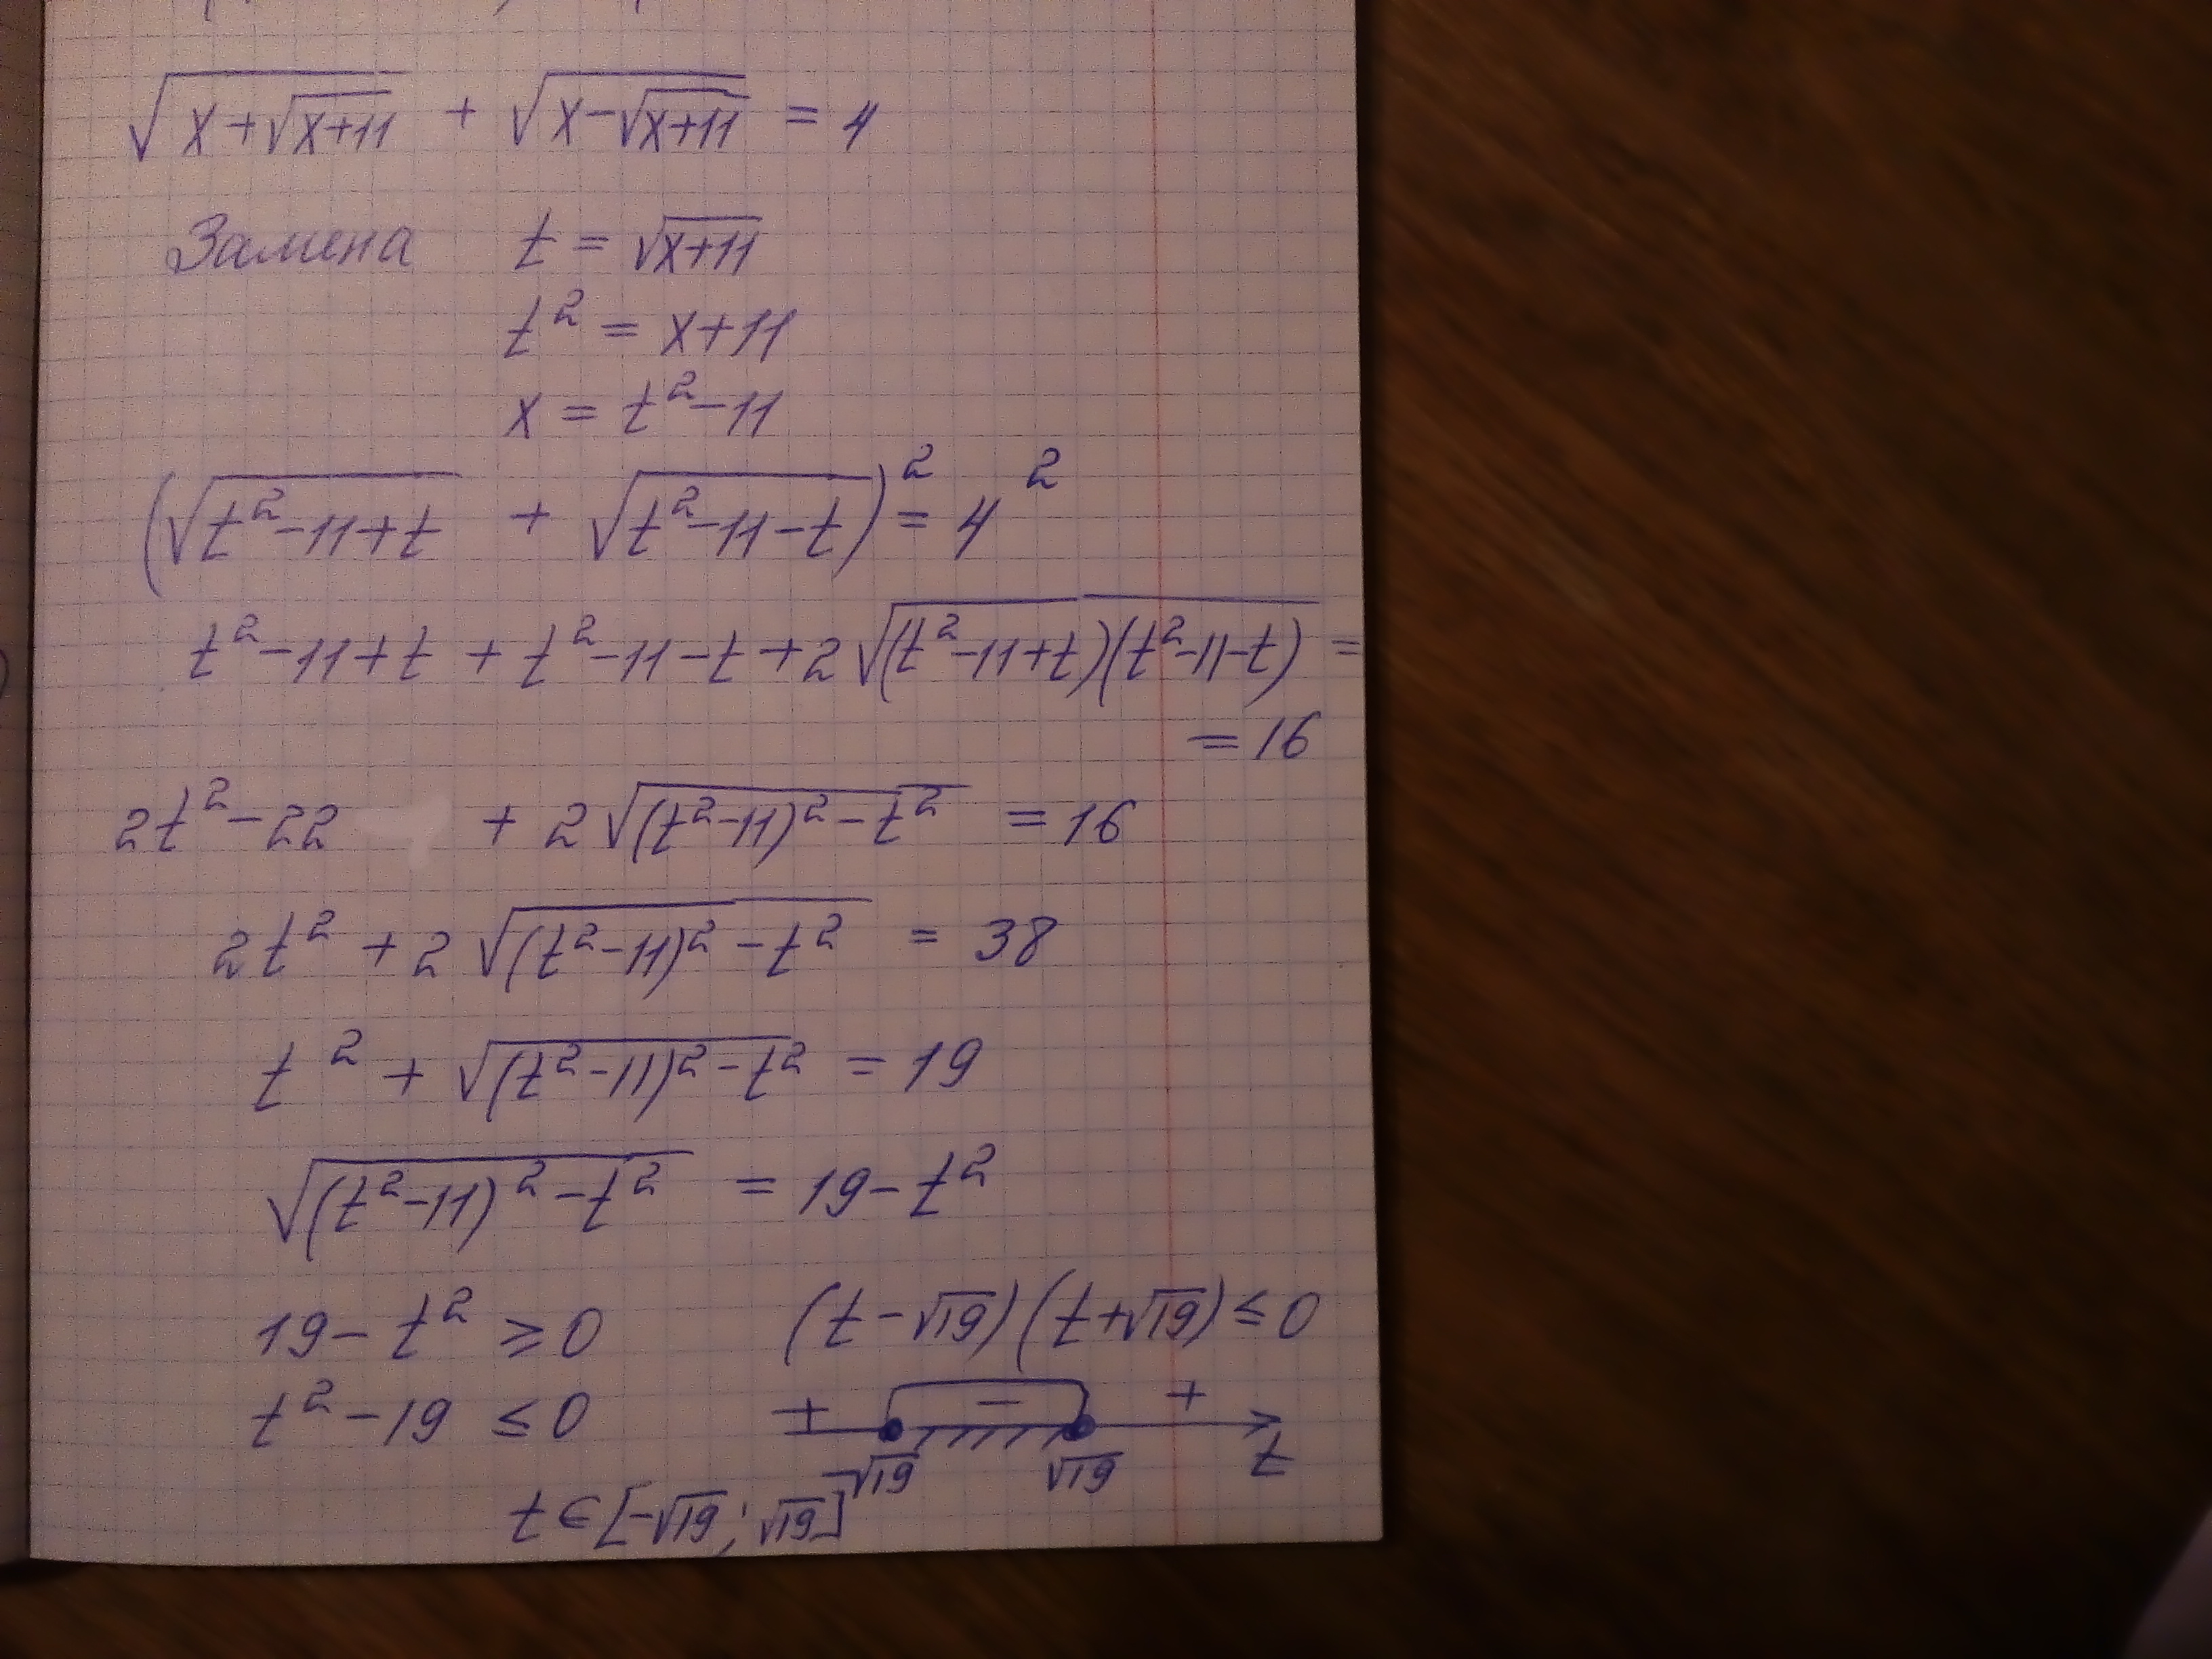 √(x+√(x+11)) + √(x-√(x+11)) = 4
Замена t = √(x+11)
t² = x+11
x = t²-11
(√(t²-11+t) + √(t²-11-t))² = 4²
t²-11+t + t²-11-t+2√((t²-11+t)(t²-11-t)) =
= 16
2t²-22 + 2√((t²-11)²-t²) = 16
2t² + 2√((t²-11)²-t²) = 38
t² + √((t²-11)²-t²) = 19
√((t²-11)²-t²) = 19-t²
19-t² ≥ 0 (t-√19)(t+√19) ≤ 0
t²-19 ≤ 0 + - +
-√19 √19 t
t ∈ [-√19; √19]